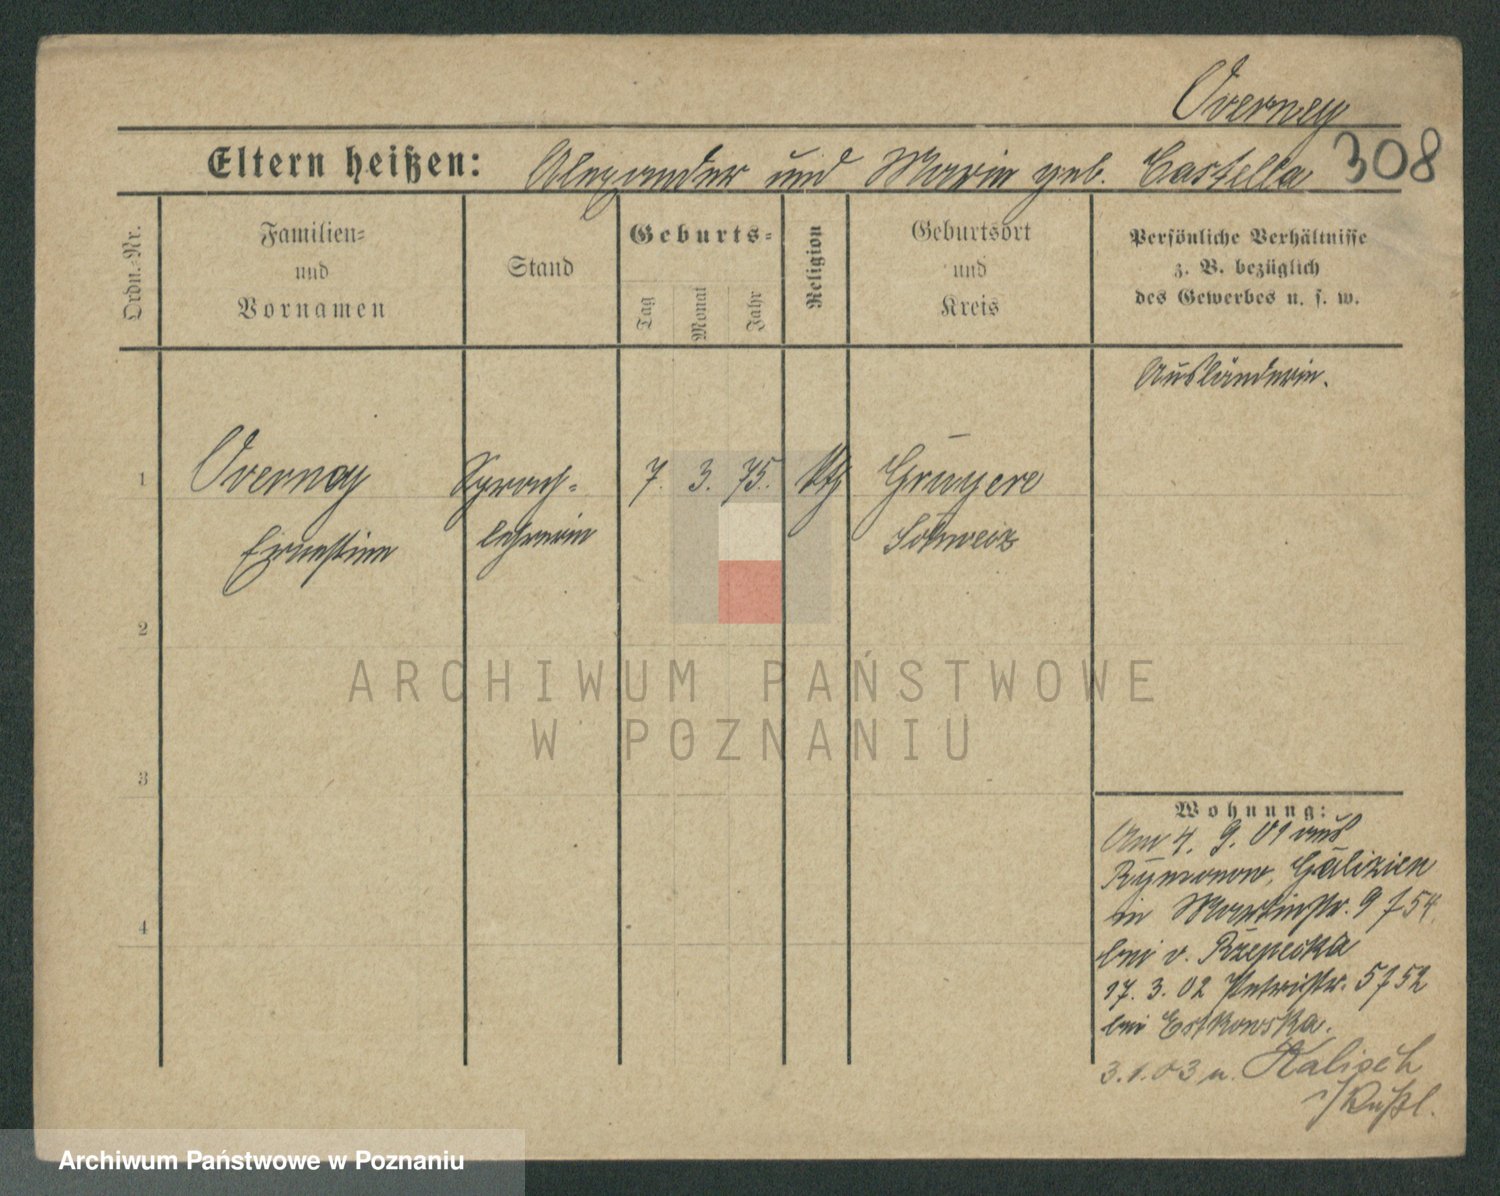 Overney
308
Eltern heißen: Alexander und Marie geb. Castella
Ordn.-Nr.
Familien-
und
Vornamen
Stand
Geburts-
Tag
Monat
Jahr
Religion
Geburtsort
und
Kreis
Persönliche Verhältnisse
z. B. bezüglich
des Gewerbes u. s. w.
Ausländerin.
1
Overney
Ernestine
Sprach-
lehrerin
7. 3. 75.
kth
Gruyere
Schweiz
2
3
4
Wohnung:
Am 4. 9. 01 aus
Rymanow, Galizien
in Martinstr. 9 f 54
bei v. Rzepecka
17. 3. 02 Petristr. 5 f 52
bei Estkowska.
3.1.03 n. Kalisch
i/Rußl.
ARCHIWUM PAŃSTWOWE
W POZNANIU
Archiwum Państwowe w Poznaniu